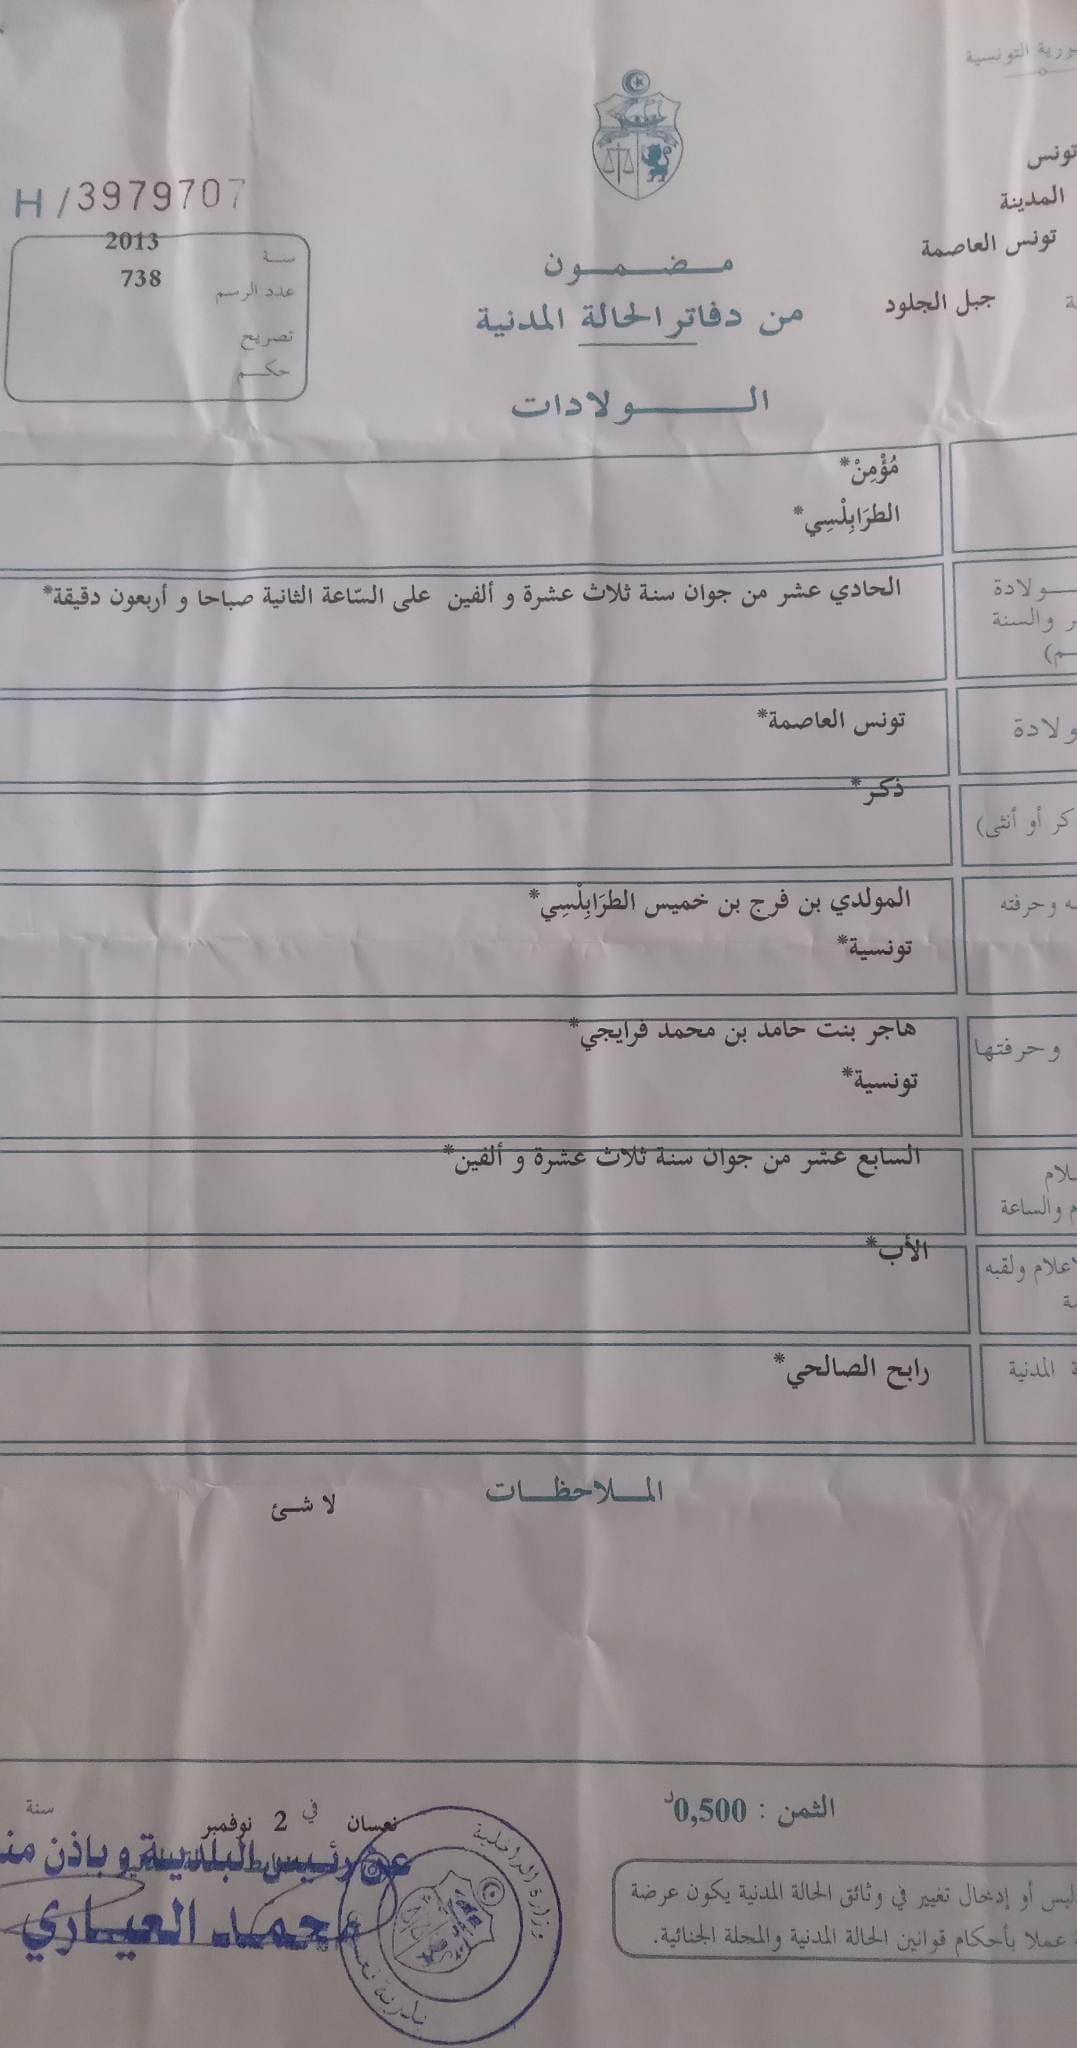 التونسية
تونس
المدينة
تونس العاصمة
جبل الجلود
H / 3979707
سنة 2013
عدد الرسم 738
تصريح
حكم
مضمون
من دفاتر الحالة المدنية
الولادات
مُؤْمِنْ*
الطرَابِلْسِي*
الحادي عشر من جوان سنة ثلاث عشرة و ألفين على السّاعة الثانية صباحا و أربعون دقيقة*
والسنة
تونس العاصمة*
ذكر*
أو أنثى)
المولدي بن فرج بن خميس الطرَابِلْسِي*
وحرفته
تونسية*
هاجر بنت حامد بن محمد فرايجي*
وحرفتها
تونسية*
السابع عشر من جوان سنة ثلاث عشرة و ألفين*
والساعة
الأب*
ولقبه
رابح الصالحي*
المدنية
الملاحظات
لا شئ
الثمن : 0,500د
نعسان في 2 نوفمبر سنة
عن رئيس البلدية و باذن
محمد العياري
وزارة الداخلية
أو إدخال تغيير في وثائق الحالة المدنية يكون عرضة
عملا بأحكام قوانين الحالة المدنية والمجلة الجنائية.